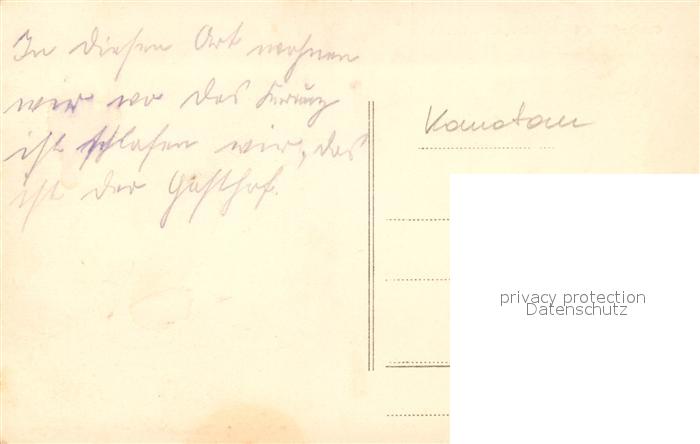 In diesem Ort wohnen
wir wo das Kreuz
ist schlafen wir, das
ist der Gasthof.
privacy protection
Datenschutz